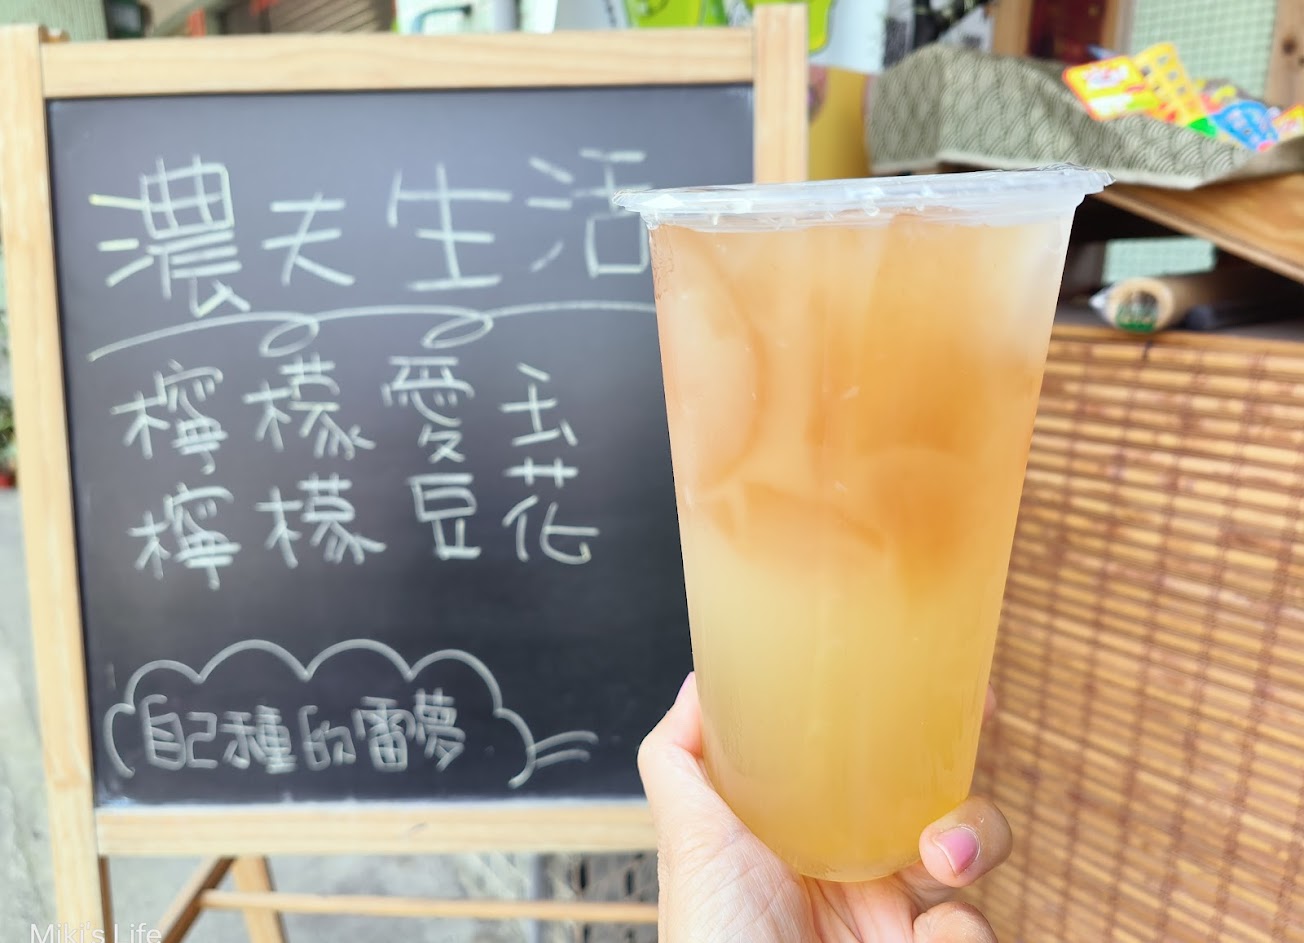 濃夫生活
檸檬愛玉
檸檬豆花
自己種的雷夢
Miki's Life